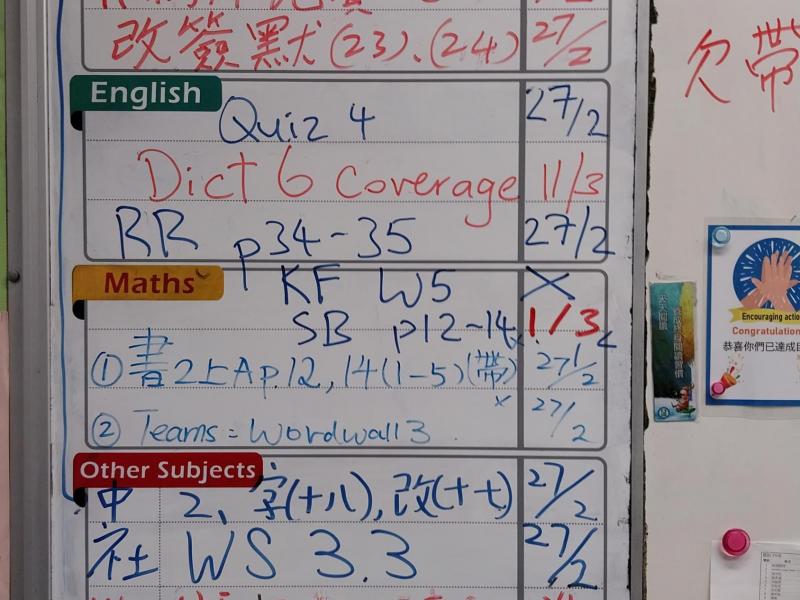 改簽默(23)、(24) 27/2
English
Quiz 4 27/2
Dict 6 Coverage 11/3
RR p34-35 27/2
Maths
KF W5 X
SB p12-14 1/3
① 書2上A p.12, 14(1-5)(帶) 27/2
② Teams = Wordwall 3 27/2
Other Subjects
中 2、字(十八),改(十七) 27/2
社 WS 3.3 27/2
欠帶
Encouraging actio
Congratulation
恭喜你們已達成目